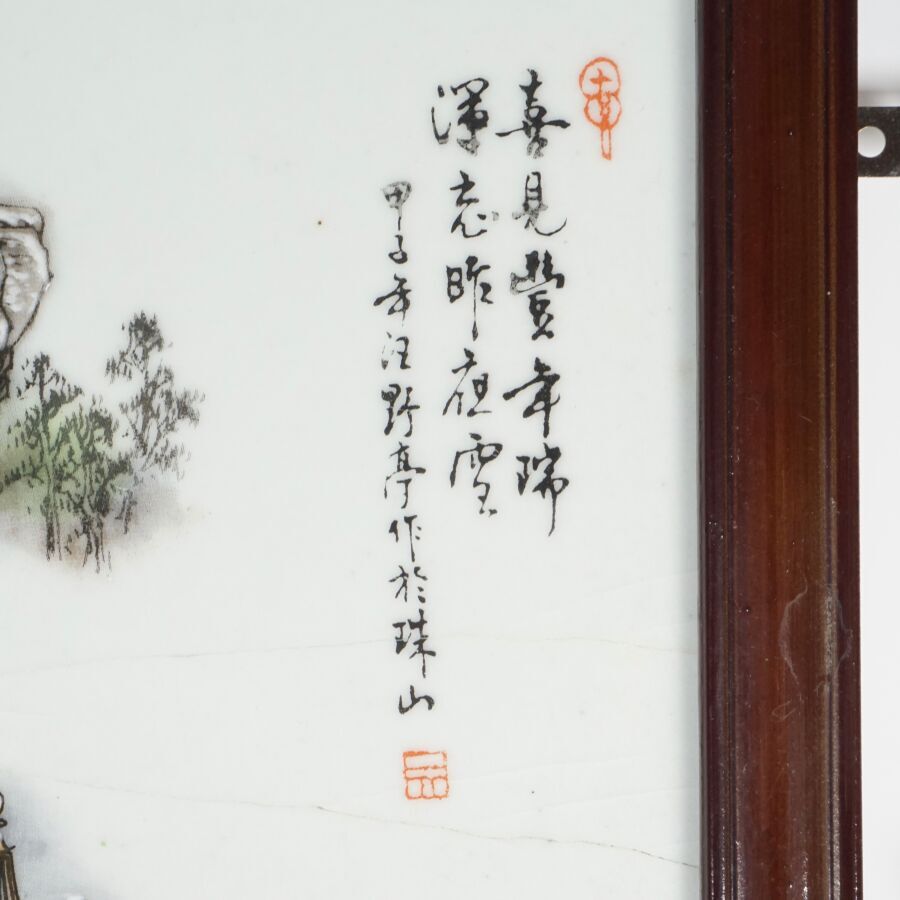 喜見豐年瑞
渾忘昨夜雪
甲子年汪野亭作於珠山